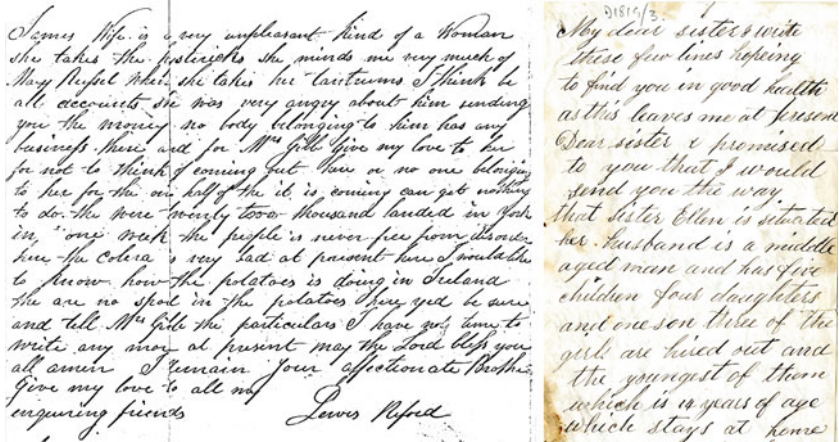 James Wife is a very unpleasant kind of a Woman
she takes the hystericks she minds me very much of
Mary Russel when she takes her tantrums I think be
all accounts she was very angry about him sending
you the money no body belonging to him has any
business there and for Mrs Gibb Give my love to her
for not to think of coming out here or no one belonging
to her for the one half of the it is coming can get nothing
to do. the were twenty tow thousand landed in York
in one week the people is never free from disorder
here the colera is very bad at present here I would like
to know how the potatoes is doing in Ireland
the are no spod in the potatoes here yed be sure
and tell Mrs Gibb the particulars I have not time to
write any more at present may the Lord bless you
all amen I remain your affectionate Brother
Give my love to all my
enquiring friends Lewis
D1819/3
My dear sister I write
these few lines hopeing
to find you in good health
as this leaves me at present
Dear sister I promised
to you that I would
send you the way
that sister Ellen is situated
her husband is a middle
aged man and has five
children four daughters
and one son three of the
girls are hired out and
the youngest of them
which is 14 years of age
which stays at home